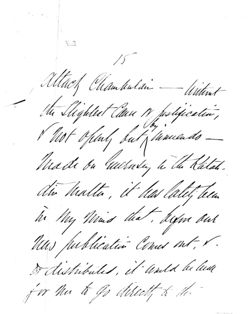 15
Attack Chamberlain — Without
the Slightest Cause or justification,
& not openly but by innuendo —
Made on Tuesday to the Katah-
din matter, it has lately been
in my mind that before our
new publication comes out &
is distributed, it would be well
for me to go directly to the